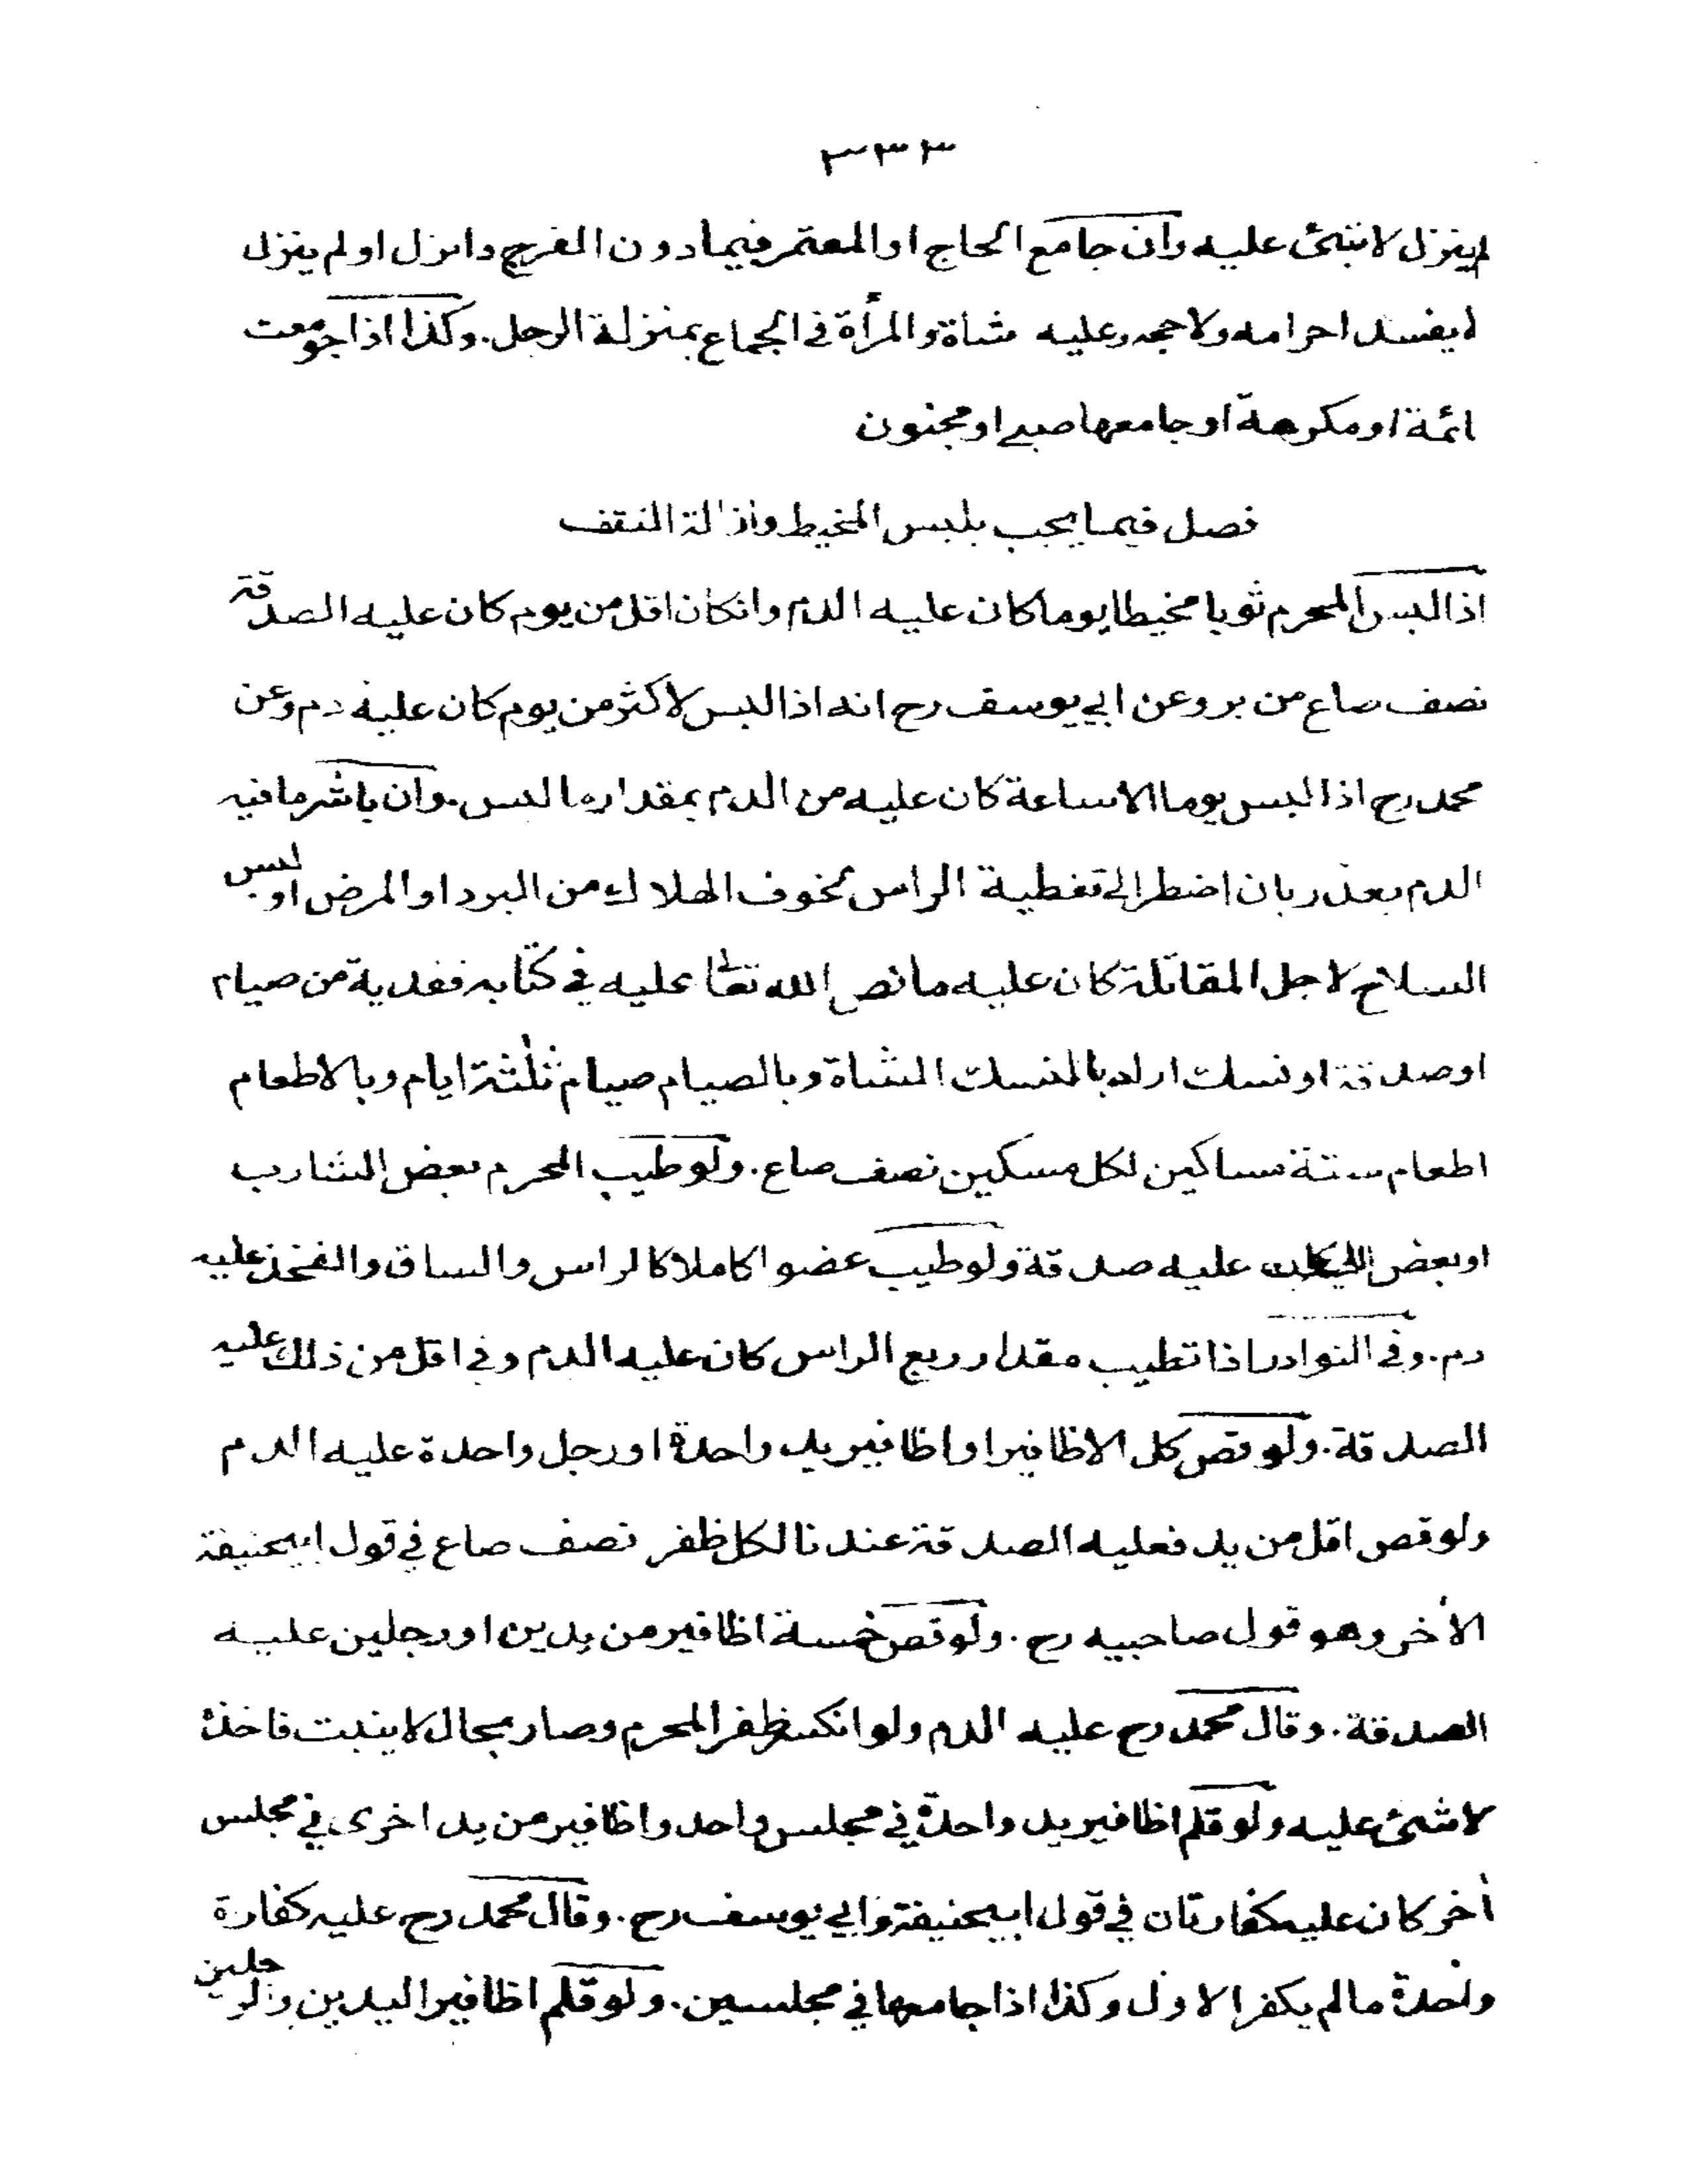 ٣٣٣
لم ينزل لا شئ عليه وان جامع الحاج او المعتمر فيما دون الفرج وانزل او لم ينزل
لا يفسد احرامه ولا حجه وعليه شاة والمرأة في الجماع بمنزلة الرجل. وكذا اذا جومعت
ائمة او مكرهة او جامعها صبي او مجنون
فصل فيما يجب بلبس المخيط وازالة التفث
اذا لبس المحرم ثوبا مخيطا يوما كان عليه الدم وانكان اقل من يوم كان عليه الصدقة
نصف صاع من بر وعن ابي يوسف رح انه اذا لبس لاكثر من يوم كان عليه دم وعن
محمد رح اذا لبس يوما الا ساعة كان عليه من الدم بمقدار ما لبس. وان باشر ما فيه
الدم بعذر بان اضطر الى تغطية الراس لخوف الهلاك من البرد او المرض او لبس
السلاح لاجل المقاتلة كان عليه ما نص الله تعالى عليه في كتابه ففدية من صيام
او صدقة او نسك اراد بالنسك الشاة وبالصيام صيام ثلثة ايام وبالاطعام
اطعام ستة مساكين لكل مسكين نصف صاع. ولو طيب المحرم بعض الشارب
او بعض عليه صدقة ولو طيب عضوا كاملا كالراس والساق والفخذ عليه
دم. وفي النوادر اذا تطيب مقدار ربع الراس كان عليه الدم وفي اقل من ذلك عليه
الصدقة. ولو قص كل الاظافير او اظافير يد واحدة او رجل واحدة عليه الدم
ولو قص اقل من يد فعليه الصدقة عندنا لكل ظفر نصف صاع في قول ابيحنيفة
الأخر وهو قول صاحبيه رح. ولو قص خمسة اظافير من يدين او رجلين عليه
الصدقة. وقال محمد رح عليه الدم ولو انكسر ظفر المحرم وصار بحال لا ينبت فاخذه
لا شئ عليه ولو قلم اظافير يد واحدة في مجلس واحد واظافير من يد اخرى في مجلس
أخر كان عليه كفارتان في قول ابيحنيفة وابي يوسف رح. وقال محمد رح عليه كفارة
واحدة ما لم يكفر الاول وكذا اذا جامعها في مجلسين. ولو قلم اظافير اليدين والرجلين